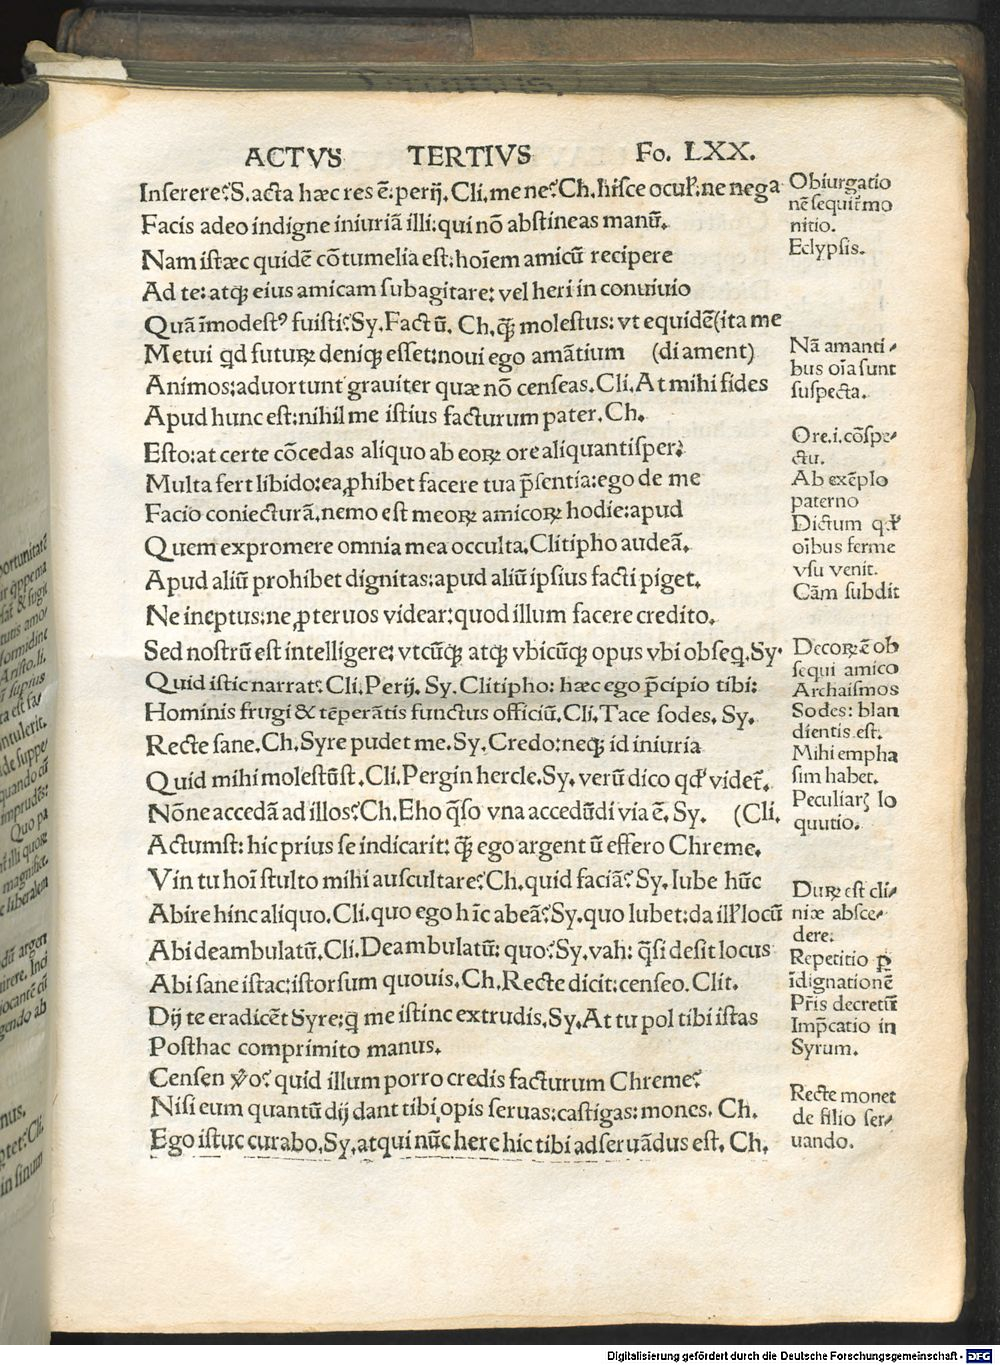 ACTVS TERTIVS Fo. LXX.
Inserere? S. acta hæc res ē. perij. Cli. me ne? Ch. hisce ocul'. ne nega
Facis adeo indigne iniuriā illi: qui nō abstineas manū.
Nam istæc quidē cōtumelia est: hoīem amicū recipere
Ad te: atq; eius amicam subagitare: vel heri in conuiuio
Quā īmodestꝰ fuisti? Sy. Factū. Ch. q̄ȝ molestus: vt equidē (ita me
Metui qd futurꝝ deniq; esset: noui ego amātium (di ament)
Animos: aduortunt grauiter quæ nō censeas. Cli. At mihi fides
Apud hunc est: nihil me istius facturum pater. Ch.
Esto: at certe cōcedas aliquo ab eoꝝ ore aliquantisper:
Multa fert libido: ea ꝓhibet facere tua p̄sentia: ego de me
Facio coniecturā. nemo est meoꝝ amicoꝝ hodie: apud
Quem expromere omnia mea occulta. Clitipho audeā.
Apud aliū prohibet dignitas: apud aliū ipsius facti piget.
Ne ineptus: ne ꝓteruos videar: quod illum facere credito.
Sed nostrū est intelligere: vtcūq; atq; vbicūq; opus vbi obseq. Sy.
Quid istic narrat? Cli. Perij. Sy. Clitipho: hæc ego p̄cipio tibi:
Hominis frugi & tēperātis functus officiū. Cli. Tace sodes. Sy.
Recte sane. Ch. Syre pudet me. Sy. Credo: neq; id iniuria
Quid mihi molestūst. Cli. Pergin hercle. Sy. verū dico qd' videt̄.
Nōne accedā ad illos? Ch. Eho q̄so vna accedūdi via ē. Sy. (Cli.
Actumst: hic prius se indicarit: q̄ȝ ego argentū effero Chreme.
Vin tu hoī stulto mihi auscultare? Ch. quid faciā? Sy. Iube hūc
Abire hinc aliquo. Cli. quo ego hīc abeā? Sy. quo lubet: da ill' locū
Abi deambulatū. Cli. Deambulatū: quo? Sy. vah: q̄si desit locus
Abi sane istac: istorsum quouis. Ch. Recte dicit: censeo. Clit.
Dij te eradicēt Syre: q me istinc extrudis. Sy. At tu pol tibi istas
Posthac comprimito manus.
Censen v̄o? quid illum porro credis facturum Chreme?
Nisi eum quantū dij dant tibi opis seruas: castigas: mones. Ch.
Ego istuc curabo. Sy. atqui nūc here hic tibi adseruādus est. Ch.
Obiurgatio
nē sequit̄ mo
nitio.
Eclypsis.
Nā amanti-
bus oīa sunt
suspecta.
Ore. i. cōspe-
ctu.
Ab exēplo
paterno
Dictum qd'
oībus ferme
vsu venit.
Cām subdit
Decoꝝ ē ob
sequi amico
Archaismos
Sodes: blan
dientis est.
Mihi empha
sim habet.
Peculiarȝ lo
quutio.
Durꝝ est cli-
niæ absce-
dere.
Repetitio ꝑ
īdignationē
Pr̄is decretū
Imp̄catio in
Syrum.
Recte monet
de filio ser-
uando.
ortunitatē
formidine
Aristo. li.
intulerit.
quando cū
imprudēs:
Quo pa
illi quoꝝ
liberalem
dū argen
uirere. Inci
iocantē cū
gendo ab
in sinum
Digitalisierung gefördert durch die Deutsche Forschungsgemeinschaft - DFG